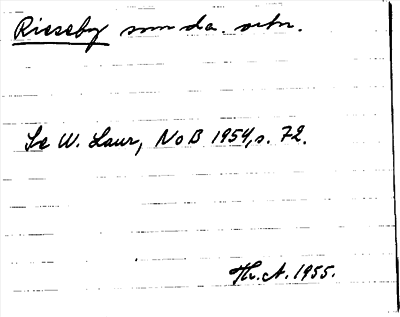 Rieseby som da. ortn.
Se W. Laur, NoB 1954, s. 72.
Th. A. 1955.